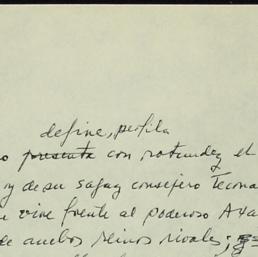 define, perfila
o presenta con rotundez el
oy de su sagaz consejero Tecona
e vive frente al poderoso Axa
de ambos reinos rivales;